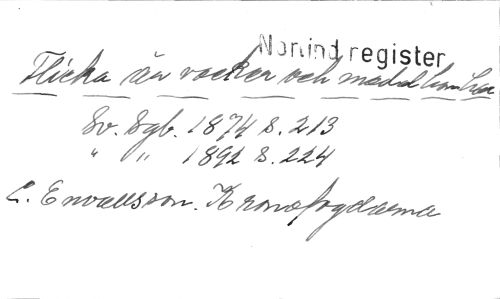 Nomind register
Flicka är vacker och med
Sv. Sgb. 1874 S. 213
" " 1892 S. 224
C. Envallsson. Kronofogdarna